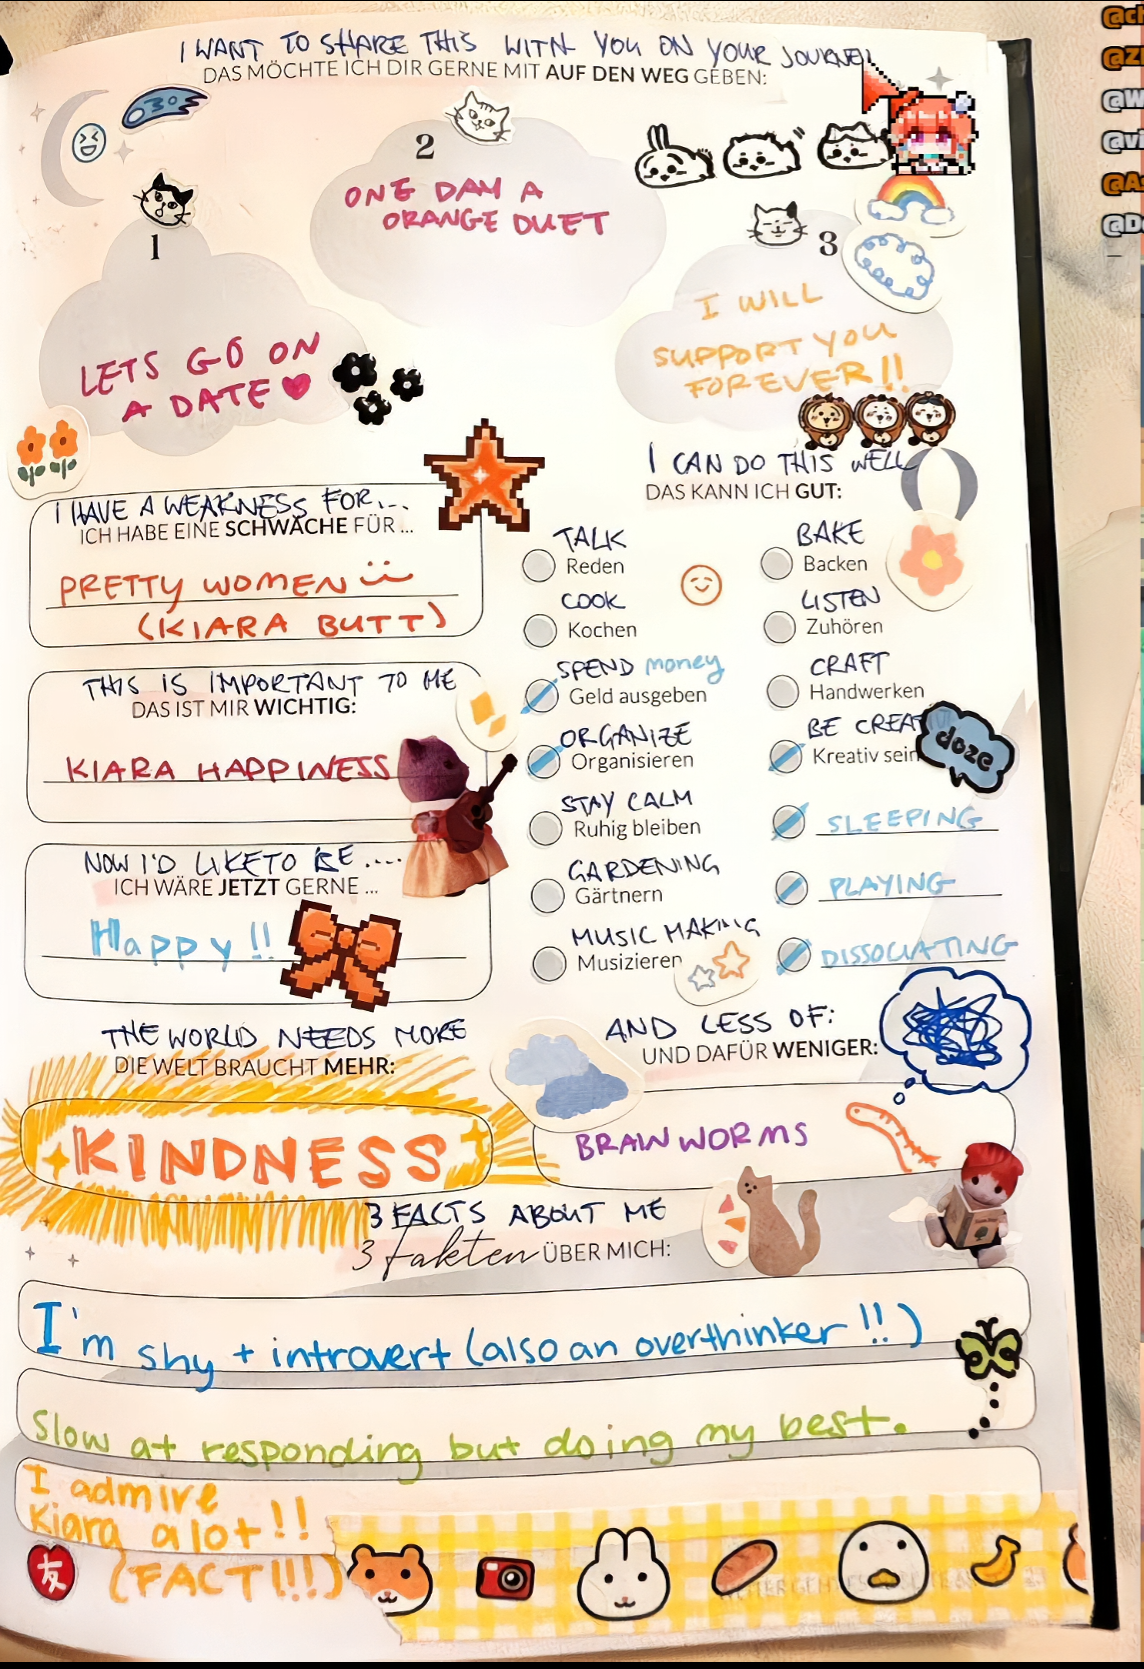 I WANT TO SHARE THIS WITH YOU ON YOUR JOURNEY
DAS MÖCHTE ICH DIR GERNE MIT AUF DEN WEG GEBEN:
1
LETS GO ON
A DATE
2
ONE DAY A
ORANGE DUET
3
I WILL
SUPPORT YOU
FOREVER!!
I HAVE A WEAKNESS FOR...
ICH HABE EINE SCHWÄCHE FÜR ...
PRETTY WOMEN
(KIARA BUTT)
THIS IS IMPORTANT TO ME
DAS IST MIR WICHTIG:
KIARA HAPPINESS
NOW I'D LIKE TO BE ....
ICH WÄRE JETZT GERNE ...
Happy!!
I CAN DO THIS WELL
DAS KANN ICH GUT:
TALK
Reden
COOK
Kochen
SPEND money
Geld ausgeben
ORGANIZE
Organisieren
STAY CALM
Ruhig bleiben
GARDENING
Gärtnern
MUSIC MAKING
Musizieren
BAKE
Backen
LISTEN
Zuhören
CRAFT
Handwerken
BE CREAT
Kreativ sein
doze
SLEEPING
PLAYING
DISSOCIATING
THE WORLD NEEDS MORE
DIE WELT BRAUCHT MEHR:
KINDNESS
AND LESS OF:
UND DAFÜR WENIGER:
BRAINWORMS
3 FACTS ABOUT ME
3 Fakten ÜBER MICH:
I'm shy + introvert (also an overthinker!!)
Slow at responding but doing my best.
I admire
Kiara alot!!
(FACT!!!)
友